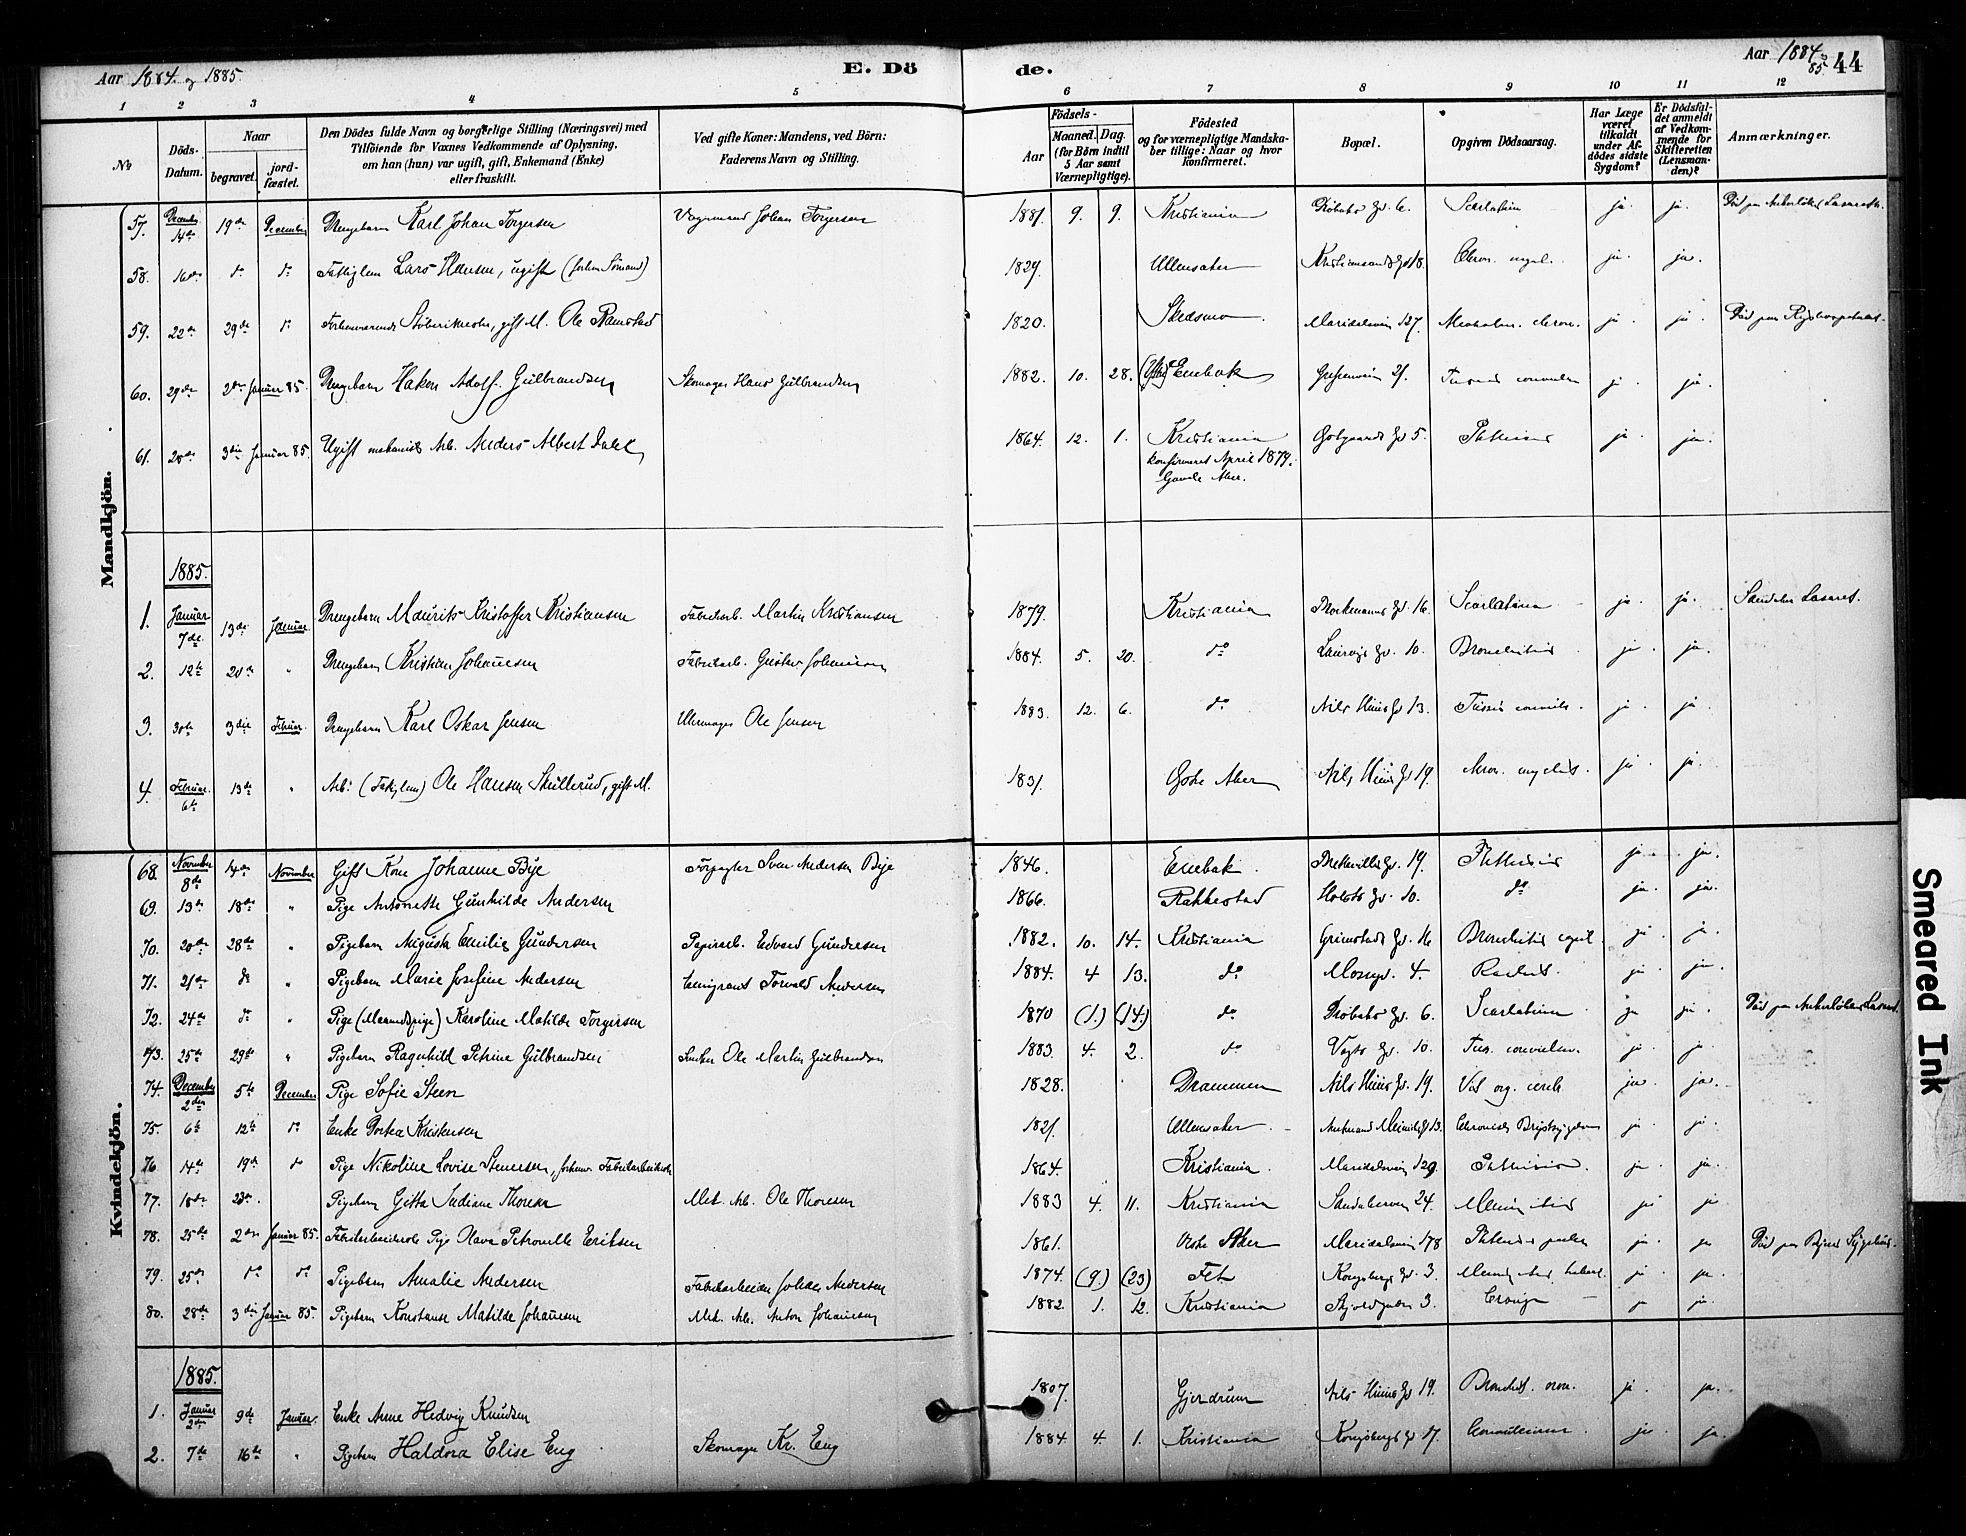 Aar 1884. og 1885.
E. Döde.
Aar 1884 85. 44
1 2 3 4 5 6 7 8 9 10 11 12
No
Döds-Datum.
Naar
begravet.
jord-fæstet.
Den Dödes fulde Navn og borgerlige Stilling (Næringsvei) med
Tilföiende for Voxnes Vedkommende af Oplysning,
om han (hun) var ugift, gift, Enkemand (Enke)
eller fraskilt.
Ved gifte Koner: Mandens, ved Börn:
Faderens Navn og Stilling.
Födsels-
Aar
Maaned. Dag.
(for Börn indtil
5 Aar samt
Værnepligtige).
Födested
og for værnepligtige Mandska-
ber tillige: Naar og hvor
konfirmeret.
Bopæl.
Opgiven Dödsaarsag.
Har Læge
været
tilkaldt
under Af-
dödes sidste
Sygdom?
Er Dödsfal-
det anmeldt
af Vedkom-
mende for
Skifteretten
(Lensman-
den)?
Anmærkninger.
Mandkjön.
57. December 14de 19de December Drengebarn Karl Johan Torgersen Johan Torgersen 1881. 9. 9. Kristiania Dröbaks Gd. 6. Scarlatina ja ja. Död paa Lasareth.
58. 16de do do Fattiglem Lars Hansen, ugift (forhen Sömand) 1829. Ullensaker Kristiansands Gd 18. Chron. myel. ja. ja.
59. 22de 29de do Forhenværende gift M. Ole Ramstad 1820. Skedsmo Maridalsvein 127. ja ja Död paa Rigshospitalet.
60. 29de 2den Januar 85. Drengebarn Hakon Adolf Gulbrandsen Skomager Hans Gulbrandsen 1882. 10. 28. Enebak 21. ja ja.
61. 28de 3die Januar 85. Ugift mekanisk Arb. Anders Albert Dahl 1864. 12. 1. Kristiania Gd 5. Phthisis ja ja.
konfirmeret April 1879.
Gamle Aker.
1885.
1. Januar 7de. 13de Januar. Drengebarn Maurits Kristoffer Kristiansen Fabrikarb. Martin Kristiansen 1879. Kristiania Gd. 16. Scarlatina ja. ja. Lasaret.
2. 12te 20de " Drengebarn Kristian Johansen Fabrikarb. Gustav Johansen 1884. 5. 20. do Laurvigs Gd. 10. Bronchitis ja. ja.
3. 30te 3die Februar. Drengebarn Karl Oskar Jensen Uhrmager Ole Jensen 1883. 12. 6. do Nils Huus Gd 13. Tussis convuls. ja ja.
4. Februar. 6te 13de " Arb. (Fattiglem) Ole Hansen Skullerud, gift M. 1831. Östre Aker Nils Huus Gd 19. Kron. myelit. ja ja.
Kvindekjön.
68. November 8de 14de November Gift Kone Johanne Bye Forpagter Sven Andersen Bye 1846. Enebak. Gd. 19. Phthisis ja ja.
69. 13de 18de " Pige Antonette Gunhilde Andersen 1866. Rakkestad Holsts Gd. 10. do ja. ja.
70. 20de 28de " Pigebarn Augusta Emilie Gundersen Papirarb. Edvard Gundersen 1882. 10. 14. Kristiania Grimstads Gd. 16 Bronchitis ja. ja.
71. 21de do " Pigebarn Marie Josefine Andersen Emigrant Torvald Andersen 1884. 4 13. do Mossegd. 4. Rachit. ja. ja.
72. 24de do " Pige Karoline Matilde Torgersen 1870 (1.) (14.) do Dröbaks Gd. 6. Scarlatina ja ja. Död paa Lasaret.
73. 25de 29de " Pigebarn Ragnhild Petrine Gulbrandsen Ole Martin Gulbrandsen 1883. 4. 2. do Vogts Gd. 10. Tus. convulsiv. ja. ja.
74. December 2den 5te December Pige Sofie Steen 1828. Drammen Nils Huus Gd. 19. Vit. org. cordis ja. ja.
75. 6te 12te do Enke Dortea Kristensen 1821. Ullensaker 13. Chronisk Brystsygdom ja. ja.
76 14de 19de do Pige Nikoline Lovise Stenersen, forhenv. Fabrikarbeiderske 1864. Kristiania. Maridalsvein 129. Phthisis. ja. ja.
77. 18de 23de. Pigebarn Gitta Thoresen Mek. Arb. Ole Thoresen 1883 4. 11. Kristiania 24. Meningitis ja ja
78. 25de 2den Januar 85. Fabrikarbeiderske Pige Olava Petronelle Eriksen 1861. Vestre Aker Maridalsvein 178 Phthisis ja. ja Död paa Byens Sygehus.
79. 25de do do Pigebarn Amalie Andersen Fabrikarbeider Johan Andersen 1874. (9.) (23) Fet Kongsbergs Gd. 3. ja. ja.
80. 28de 3die Januar 85. Pigebarn Konstanse Matilde Johansen Mek. Arb. Anton Johansen 1882. 1. 12. Kristiania 3. ja ja.
1885.
1. Januar 2den 9de Januar. Enke Anne Hedvig Knudsen 1807. Gjerdrum Nils Huus Gd 19. Bronchit. cron. ja. ja.
2. 7de 16de " Pigebarn Haldora Elise Eng Skomager Kr. Eng 1884 4. 1. Kristiania Kongsbergs Gd 17. Convulsiones ja. ja.
Smeared Ink